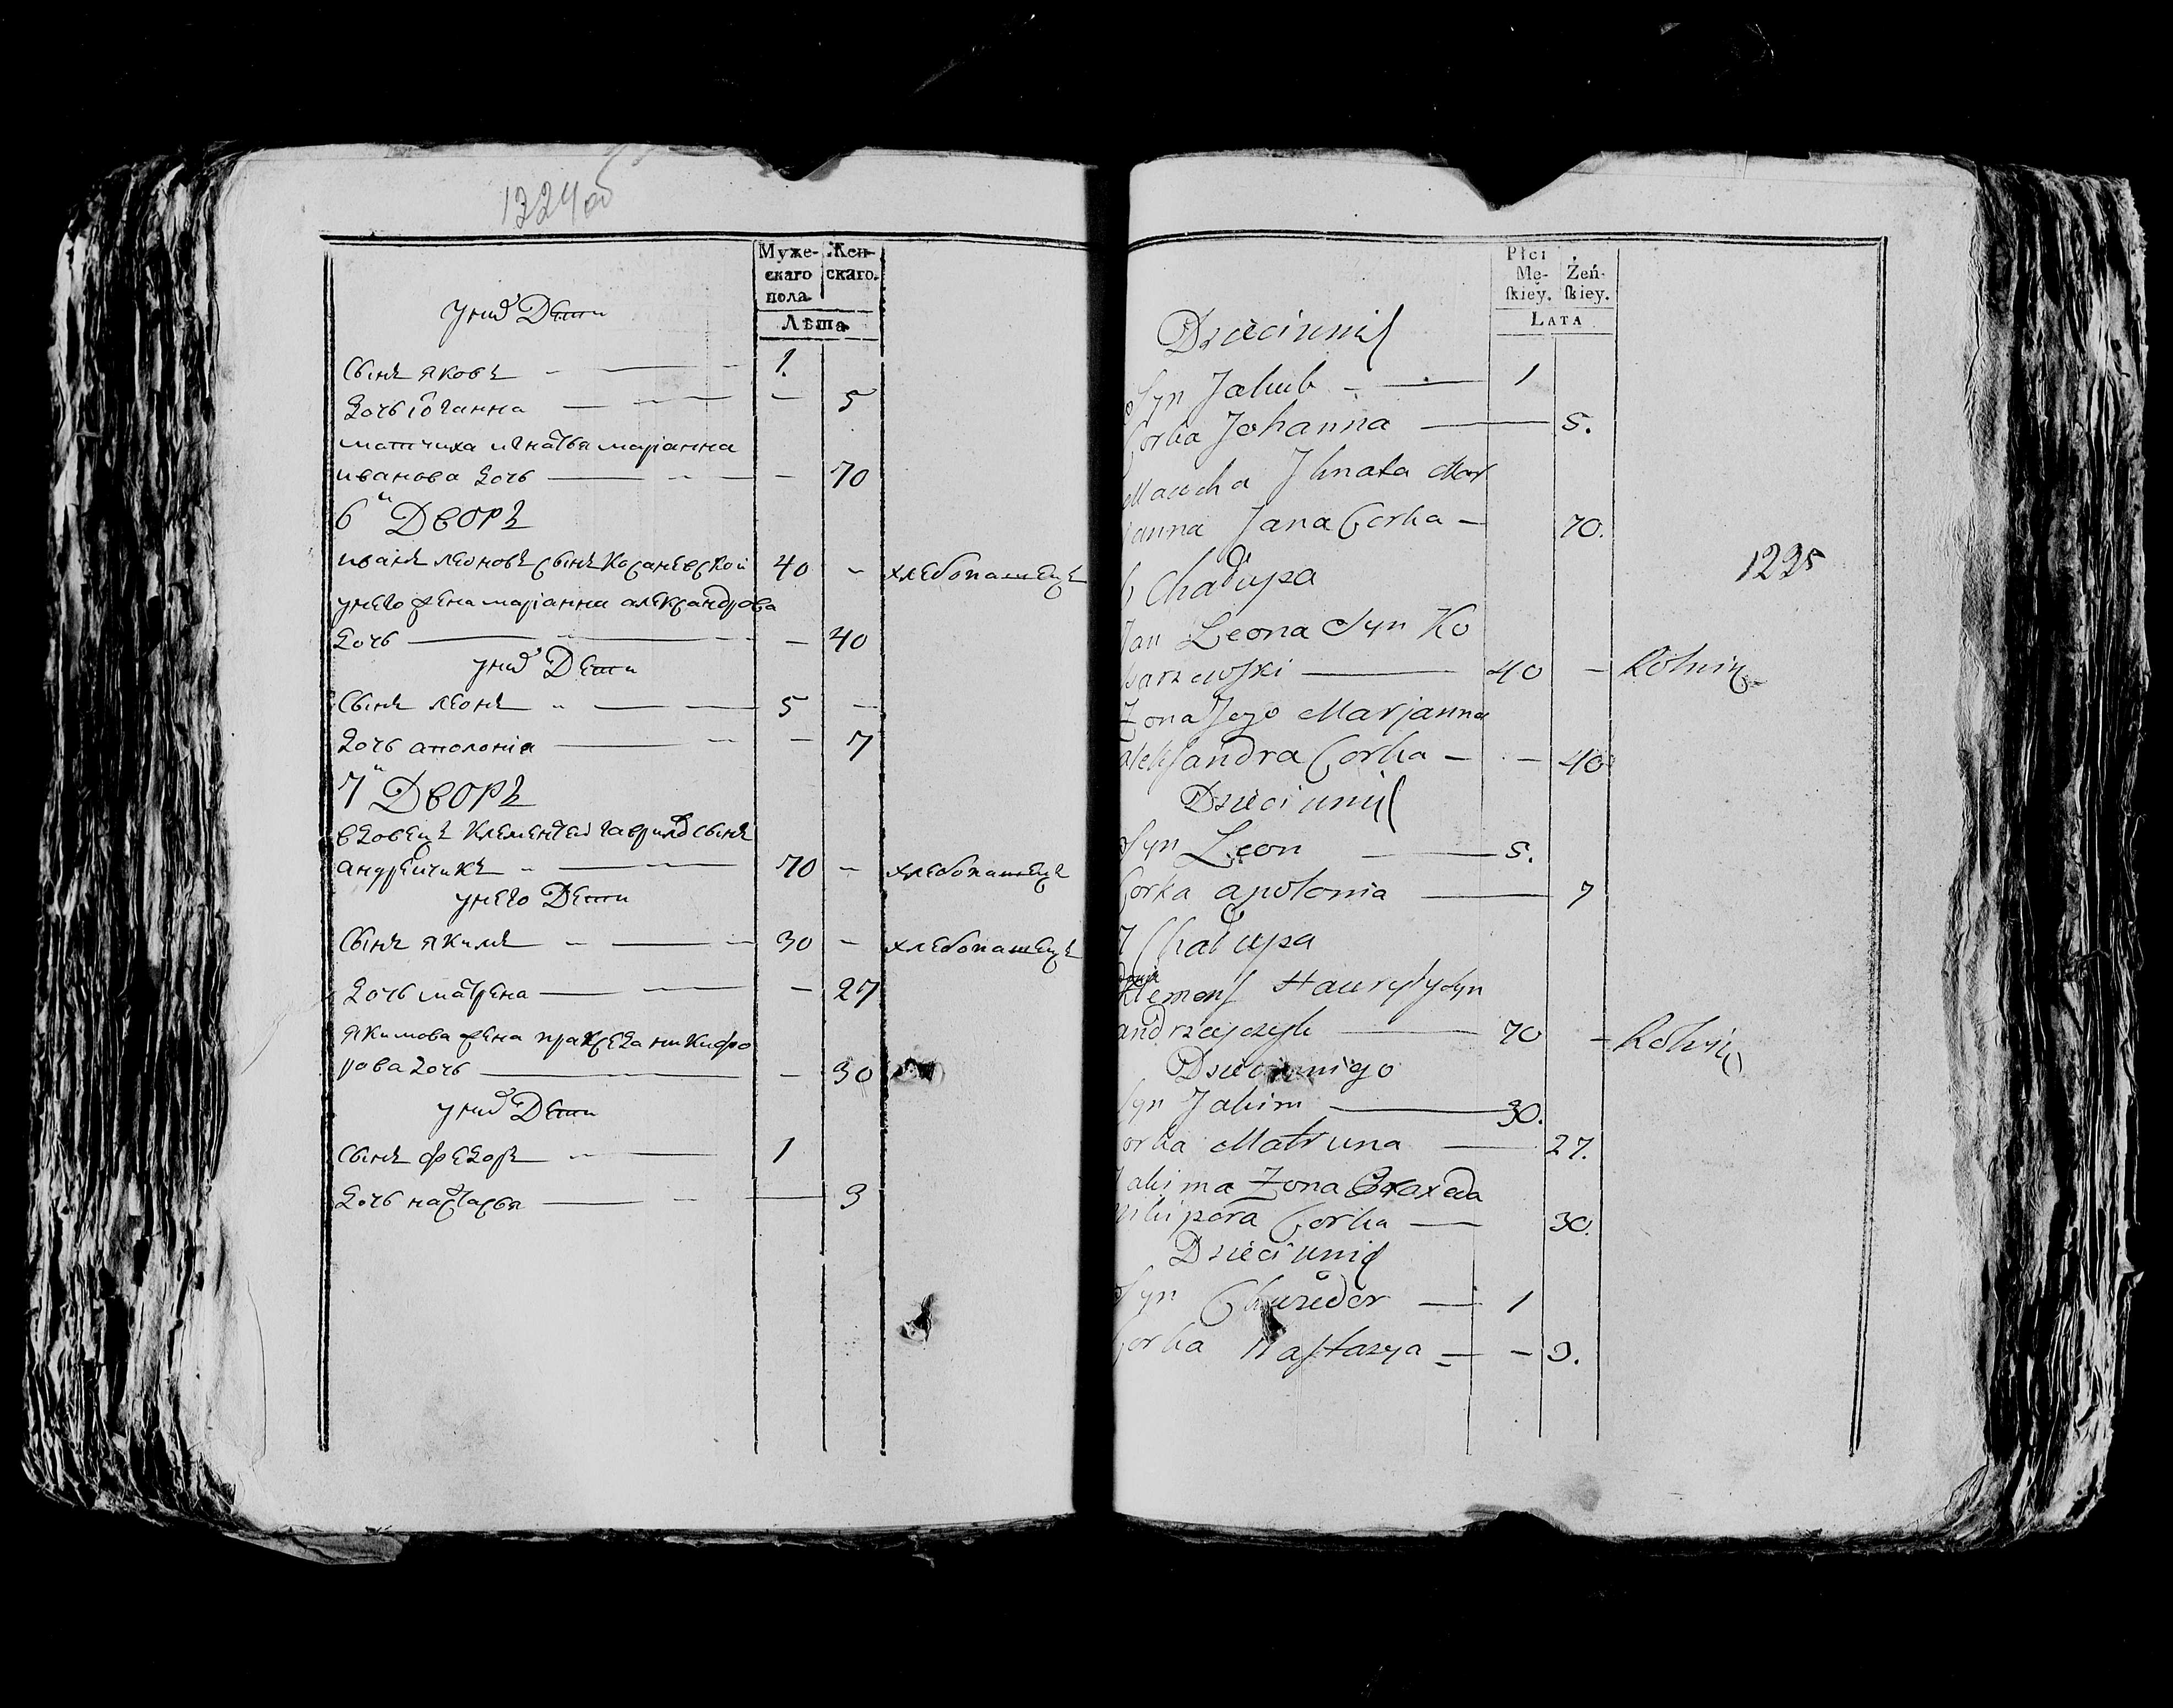 1224 об
Муже-
скаго
пола.
Жен-
скаго.
Лѣта
у них Дети
Сынъ яковъ 1.
Дочь iоганна 5
матчиха игнатья марiанна
иванова дочь 70
6й Дворъ
иванъ леоновъ сынъ 40 хлебопашецъ
у него жена марiанна александрова
дочь 40
у них Дети
Сынъ леонъ 5
Дочь аполонiя 7
7й Дворъ
вдовецъ Клементей гаврилов сынъ
андрейчикъ 70 хлебопашецъ
у него Дети
Сынъ якимъ 30 хлебопашецъ
Дочь матрена 27
якимова жена пракседа никифо
рова дочь 30
у них Дети
Сынъ федоръ 1
Дочь настасья 3
Płci
Mę-
ſkiey.
Żeń-
ſkiey.
LATA
Dzieci unich
Syn Jakub 1
Corka Johanna 5.
Macocha Ihnata Mar
janna Jana Corka 70.
1225
6 Chałupa
Jan Leona Syn Ko
sarzewski 40 Rolnik
Zona Jego Marjanna
alexandra Corka 40
Dzieci unich
Syn Leon 5.
Corka apołonia 7
7 Chałupa
Klemens Hauryły Syn
andrzejczyk 70 Rolnik
Dzieci unigo
Syn Jakim 30.
Corka Matruna 27.
Jakima Zona Praxeda
nikipora Corka 30.
Dzieci unich
Syn Chwiedor 1
Corka Nastazya 3.